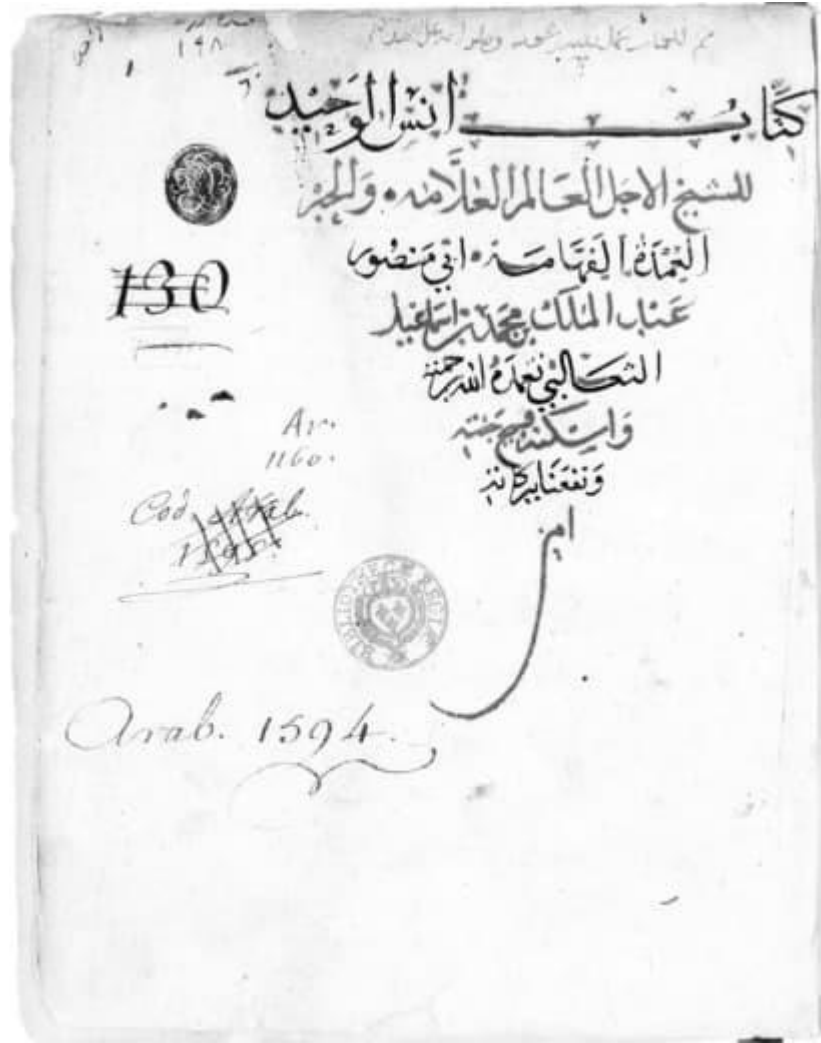 ١٩٨
1
كتاب انس الوحيد
12
للشيخ الاجل العالم العلامه والحبر
العمدة الفهامه ابي منصور
عبد الملك بن محمد بن اسماعيل
الثعالبي تغمده الله برحمته
واسكنه فسيح جنته
ونفعنا ببركاته
امين
130
Ar.
1160.
Cod. Arab.
1595
Arab. 1594.